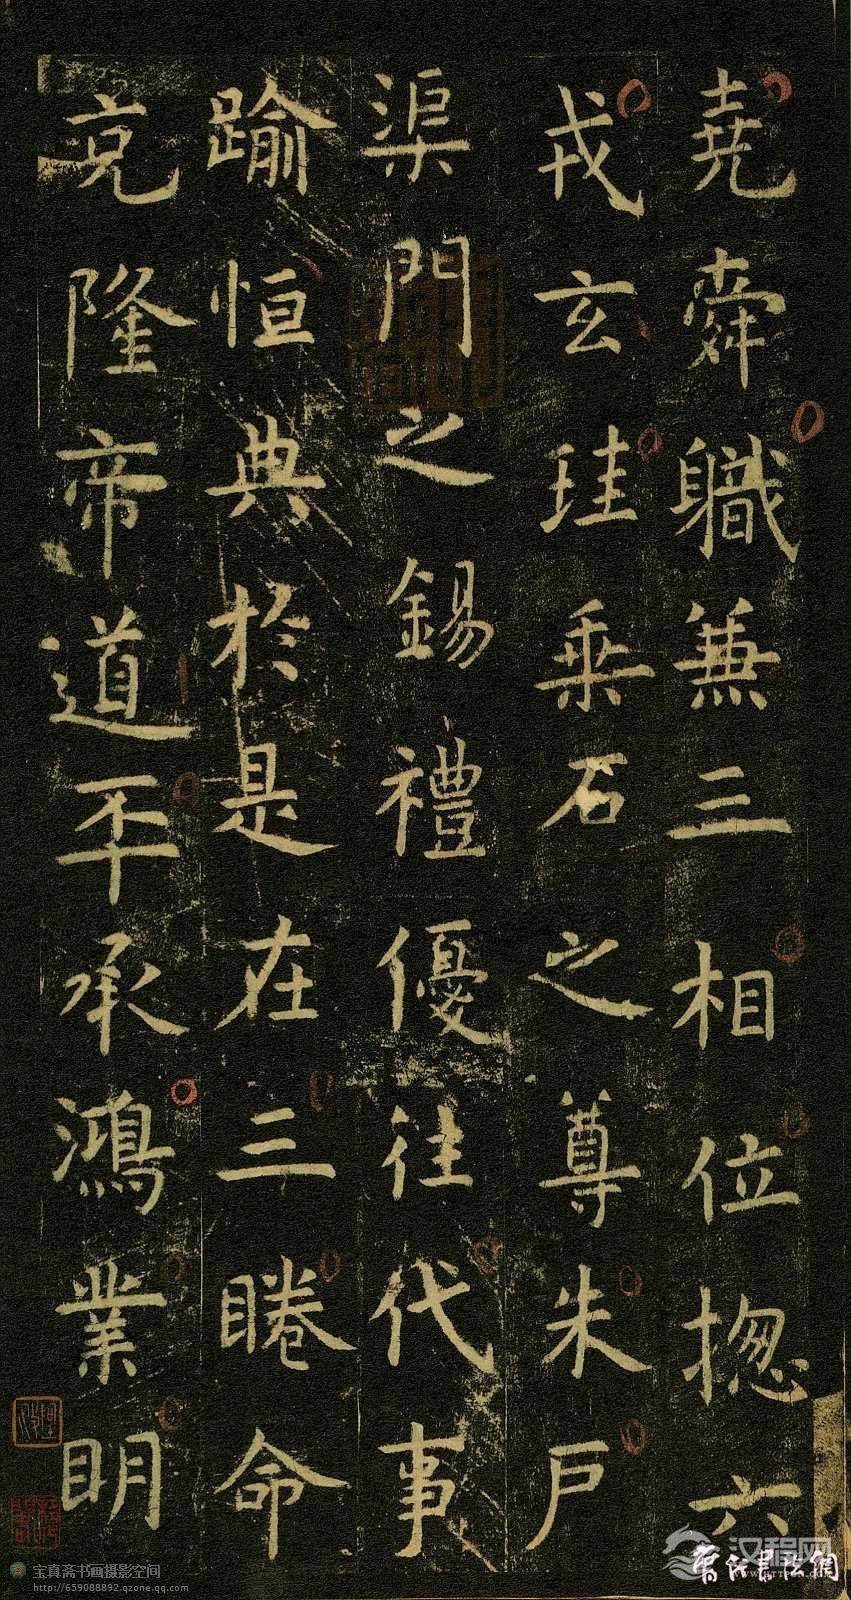 堯舜職兼三相位揔六
戎玄珪乘石之尊朱户
渠門之錫禮優往代事
踰恒典於是在三睠命
克隆帝道丕承鴻業明
宝真斋书画摄影空间
http://659088892.qzone.qq.com
汉程网